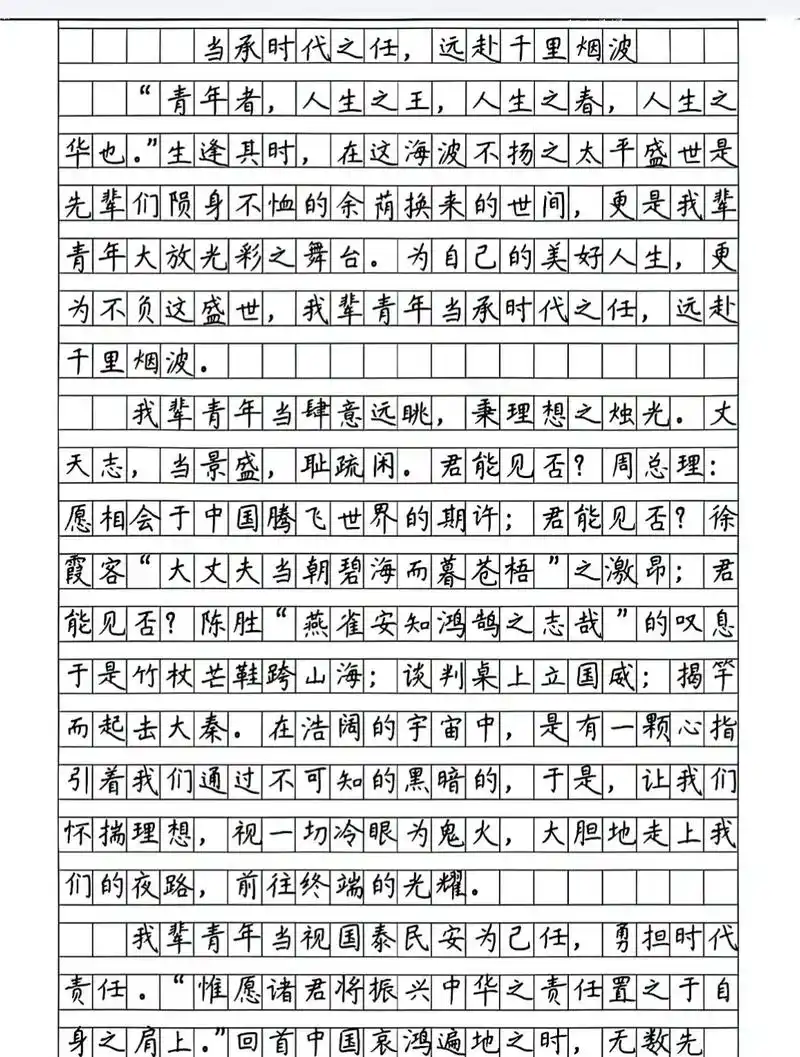 当承时代之任，远赴千里烟波
“青年者，人生之王，人生之春，人生之
华也。”生逢其时，在这海波不扬之太平盛世是
先辈们陨身不恤的余荫换来的世间，更是我辈
青年大放光彩之舞台。为自己的美好人生，更
为不负这盛世，我辈青年当承时代之任，远赴
千里烟波。
我辈青年当肆意远眺，秉理想之烛光。丈
天志，当景盛，耻疏闲。君能见否？周总理：
愿相会于中国腾飞世界的期许；君能见否？徐
霞客“大丈夫当朝碧海而暮苍梧”之激昂；君
能见否？陈胜“燕雀安知鸿鹄之志哉”的叹息
于是竹杖芒鞋跨山海；谈判桌上立国威；揭竿
而起去大秦。在浩阔的宇宙中，是有一颗心指
引着我们通过不可知的黑暗的，于是，让我们
怀揣理想，视一切冷眼为鬼火，大胆地走上我
们的夜路，前往终端的光耀。
我辈青年当视国泰民安为己任，勇担时代
责任。“惟愿诸君将振兴中华之责任置之于自
身之肩上。”回首中国哀鸿遍地之时，无数先